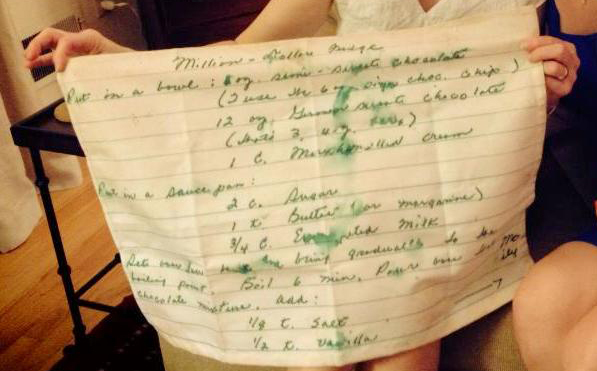 Million-Dollar Fudge
Put in a bowl: 6 oz. semi-sweet chocolate
(I use the 6 oz. choc. chip)
12 oz. German sweet chocolate
(that's 3, 4 oz. bars)
1 C. Marshmallow cream
Put in a sauce pan:
2 C. Sugar
1 t. Butter (or margarine)
3/4 C. Evaporated Milk
Sets over low being gradually to be
boiling point Boil 6 min. Pour over
chocolate mixture. Add:
1/8 t. Salt
1/2 t. Vanilla